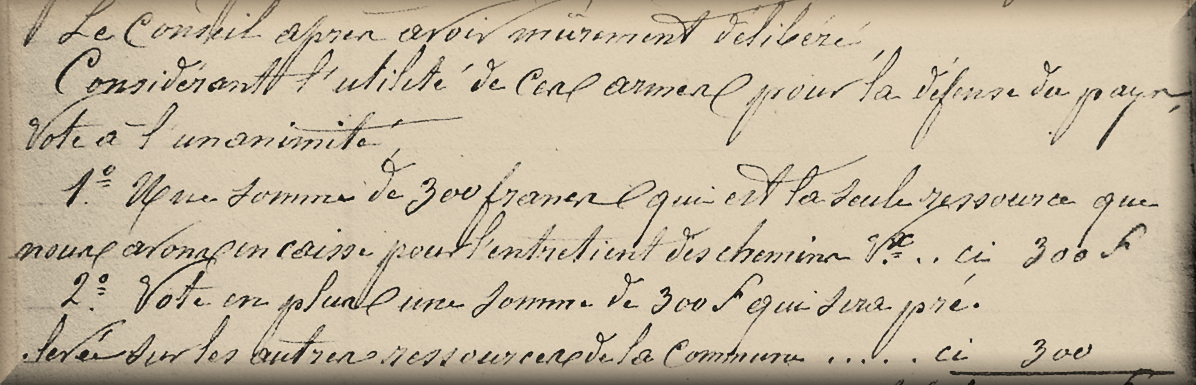 Le Conseil après avoir mûrement délibéré,
Considérant l'utilité de ces armes pour la défense du pays,
Vote à l'unanimité,
1º Une somme de 300 francs qui est la seule ressource que
nous avons en caisse pour l'entretient des chemins Vx.. ci 300 F
2º Vote en plus une somme de 300 F qui sera pré.
.levée sur les autres ressources de la Commune ..... ci 300